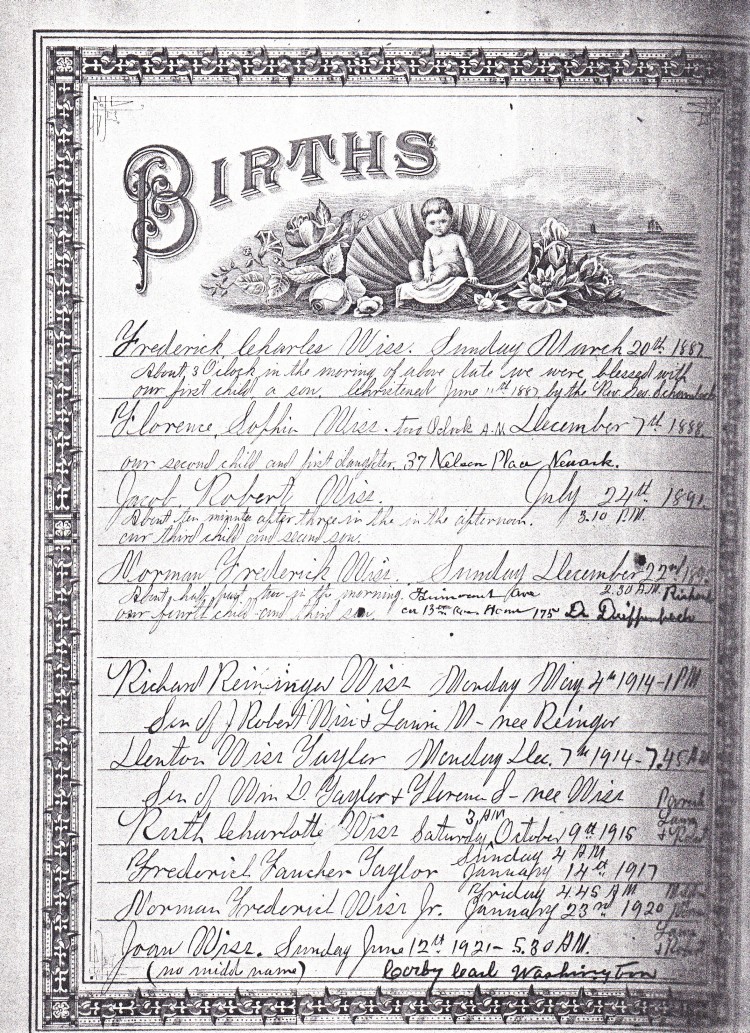 BIRTHS
Frederick Charles Wiss. Sunday March 20th 1887
About 3 O'clock in the moring of above date we were blessed with
our first child a son. Christened June 11th 1887 by the Rev. Geo.
Florence Sophia Wiss. two O'clock A.M December 7th 1888.
our second child and first daughter. 37 Nelson Place Newark.
Jacob Robert Wiss. July 24th 1891.
About ten minutes after three in the in the afternoon. 3.10 P.M.
our third child and second son.
Norman Frederick Wiss. Sunday December 22nd
About half past two in the morning. Ave 2.30 A.M.
our fourth child and third son. cor 13th Home 175 Dr Dieffenbach
Richard Reininger Wiss Monday May 4th 1914-1 PM
Son of J Robert Wiss & M- nee Reinger
Denton Wiss Taylor Monday Dec. 7th 1914-7.45 A.M
Son of Wm D. Taylor & Florence S- nee Wiss
Parents
Ruth Charlotte Wiss Saturday 3 AM October 9th 1915
Frederick Faucher Taylor Sunday 4 A.M. January 14th 1917
Norman Frederick Wiss Jr. Friday 4 45 A M January 23rd 1920
Joan Wiss. Sunday June 12th 1921- 5.30 A.M.
(no midd name) Washington